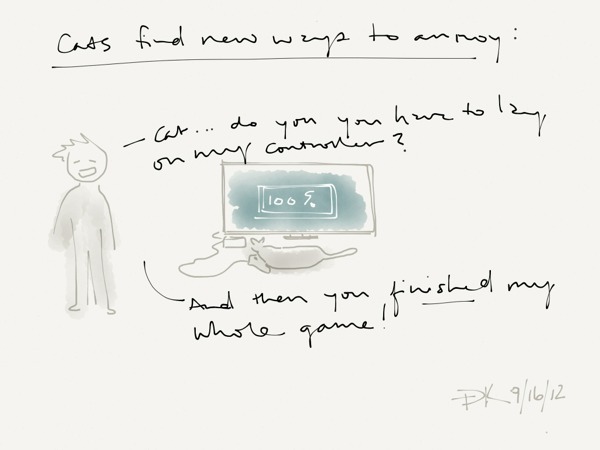 Cats find new ways to annoy:
Cat... do you you have to lay
on my controller?
100%
And then you finished my
whole game!
DK 9/16/12